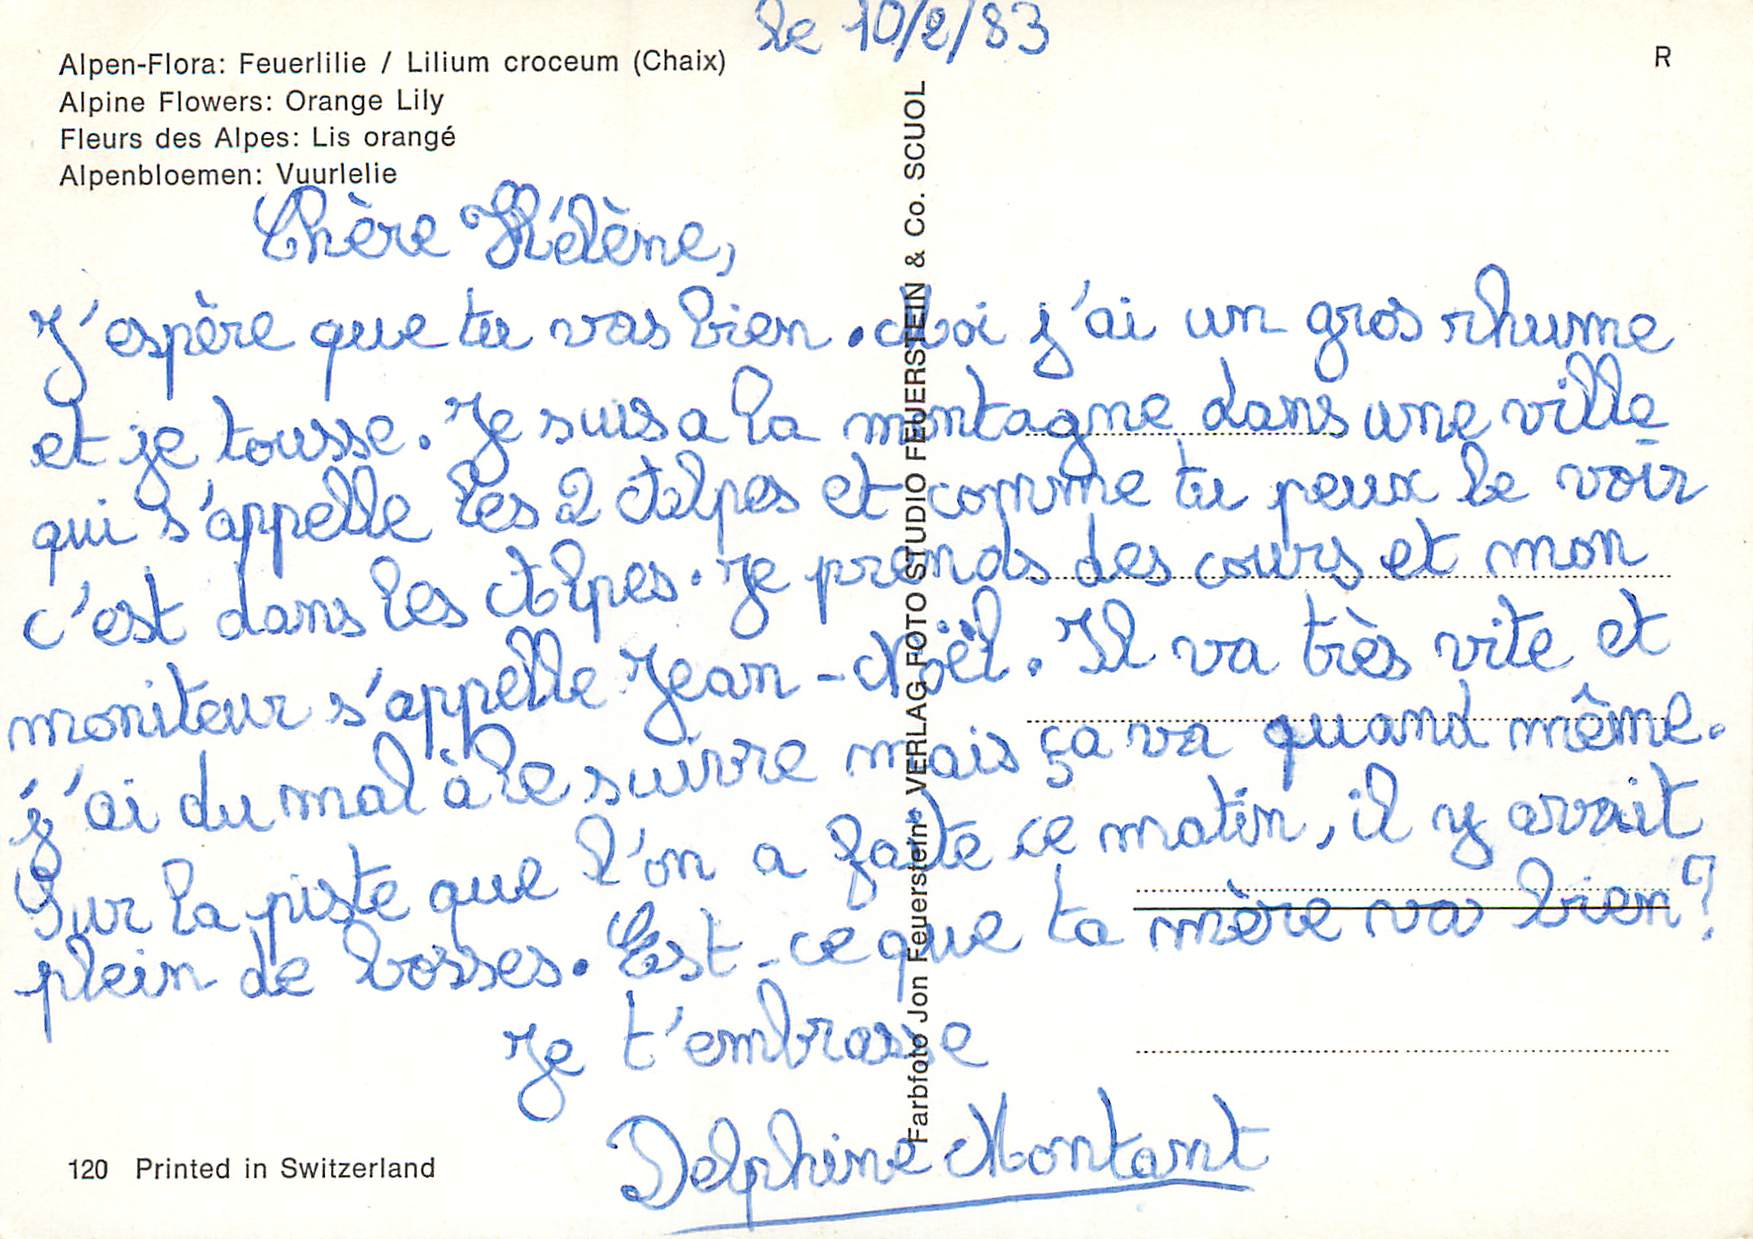 le 10/2/83
Alpen-Flora: Feuerlilie / Lilium croceum (Chaix)
Alpine Flowers: Orange Lily
Fleurs des Alpes: Lis orangé
Alpenbloemen: Vuurlelie
R
Chère Hélène,
J'espère que tu vas bien. Moi j'ai un gros rhume
et je tousse. Je suis a la montagne dans une ville
qui s'appelle les 2 Alpes et comme tu peux le voir
c'est dans les Alpes. Je prends des cours et mon
moniteur s'appelle Jean-Noël. Il va très vite et
j'ai du mal à le suivre mais ça va quand même.
Sur la piste que l'on a faite ce matin, il y avait
plein de bosses. Est-ce que ta mère va bien?
Je t'embrasse
Delphine Montant
120 Printed in Switzerland
Farbfoto Jon Feuerstein • VERLAG FOTO STUDIO FEUERSTEIN & Co. SCUOL